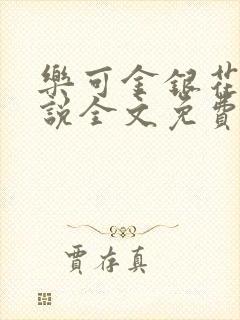 樂可金銀花
說全文免費
賈存真